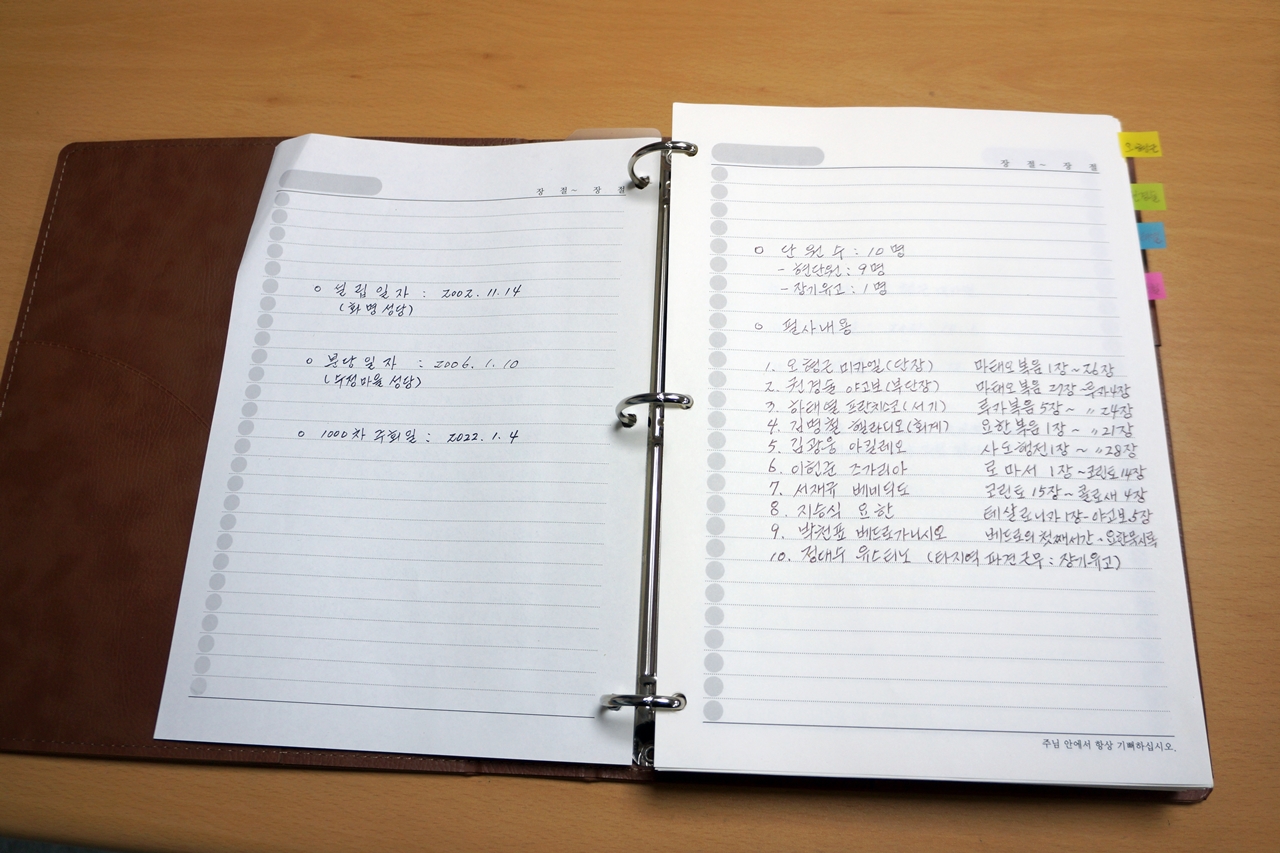 장 절~ 장 절
○ 설립일자 : 2002. 11. 14
(화명성당)
○ 분당일자 : 2006. 1. 10
(덕정마을성당)
○ 1000차 주회일 : 2022. 1. 4
장 절~ 장 절
○ 단원수 : 10명
- 현단원 : 9명
- 장기유고 : 1명
○ 필사내용
1. 오형근 미카엘(단장) 마태오복음 1장~26장
2. 권경돌 야고보(부단장) 마태오복음 27장~루카4장
3. 하태열 프란치스코(서기) 루카복음 5장~ 〃 24장
4. 김명철 헬라디오(회계) 요한복음 1장~ 〃 21장
5. 김광웅 아킬레오 사도행전1장~ 〃 28장
6. 이헌준 즈가리아 로마서 1장~코린토14장
7. 서재규 베네딕도 코린토 15장~콜로새 4장
8. 지승식 요한 테살로니카1장~야고보5장
9. 박천표 베드로가니시오 베드로의첫째서간~요한묵시록
10. 정대수 유스티노 (타지역 파견근무 : 장기유고)
주님 안에서 항상 기뻐하십시오.